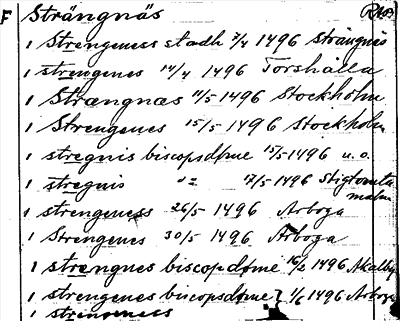 F Strängnäs
1 Strengeness stadh 7/4 1496 Strängnäs
1 strengenes 14/4 1496 Torshälla
1 Strængnæs 11/5 1496 Stockholm
1 Strengenes 15/5 1496 Stockholm
1 stregnis biscopsdøme 15/5 1496 u.o.
1 stregnis 17/5 1496 Stigtomta
malm
1 strengeness 26/5 1496 Arboga
1 Strengenes 30/5 1496 Arboga
1 strengnes biscopsdøme 1496 Akalby
1 strengenes biscopsdøme 1/6 1496 Arboga
1 strengeness